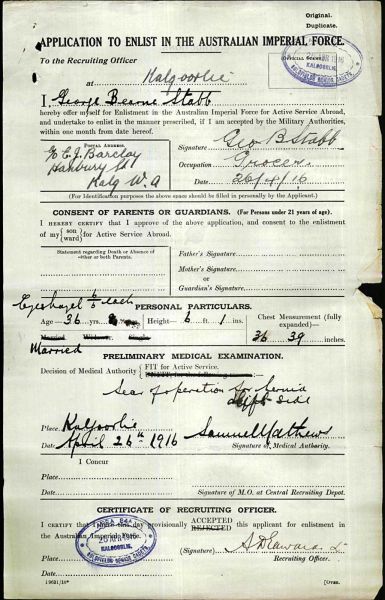 Original.
Duplicate.
APPLICATION TO ENLIST IN THE AUSTRALIAN IMPERIAL FORCE.
To the Recruiting Officer
at Kalgoorlie
KALGOORLIE
I, George Bearne Stabb
hereby offer myself for Enlistment in the Australian Imperial Force for Active Service Abroad,
and undertake to enlist in the manner prescribed, if I am accepted by the Military Authorities,
within one month from date hereof.
POSTAL ADDRESS.
C/o E.J. Barclay
Hanbury St
Kalg W.A
Signature Geo B Stabb
Occupation Grocer
Date 26/4/16
(For identification purposes the above space should be filled in personally by the Applicant).
CONSENT OF PARENTS OR GUARDIANS. (For Persons under 21 years of age).
I HEREBY CERTIFY that I approve of the above application, and consent to the enlistment
of my (son ward) for Active Service Abroad.
Statement regarding Death or Absence of
either or both Parents.
Father's Signature
Mother's Signature
or
Guardian's Signature
Eyes hazel 6/6 each
PERSONAL PARTICULARS.
Age 36 yrs. Height 6 ft. 1 ins.
Chest Measurement (fully expanded)
36 39 inches.
Married Widower Single
Married
PRELIMINARY MEDICAL EXAMINATION.
Decision of Medical Authority FIT for Active Service.
Scar of operation for hernia
left side
Place Kalgoorlie
Date April 26th 1916
Samuel Mathews
Signature of Medical Authority.
I Concur
Place
Date
Signature of M.O. at Central Recruiting Depot.
CERTIFICATE OF RECRUITING OFFICER.
I CERTIFY that I have this day provisionally ACCEPTED REJECTED this applicant for enlistment in
the Australian Imperial Force.
GOLDFIELDS SENIOR CADETS
26 APR 1916
KALGOORLIE.
Place
Date
(Signature)
Recruiting Officer.
(Over.